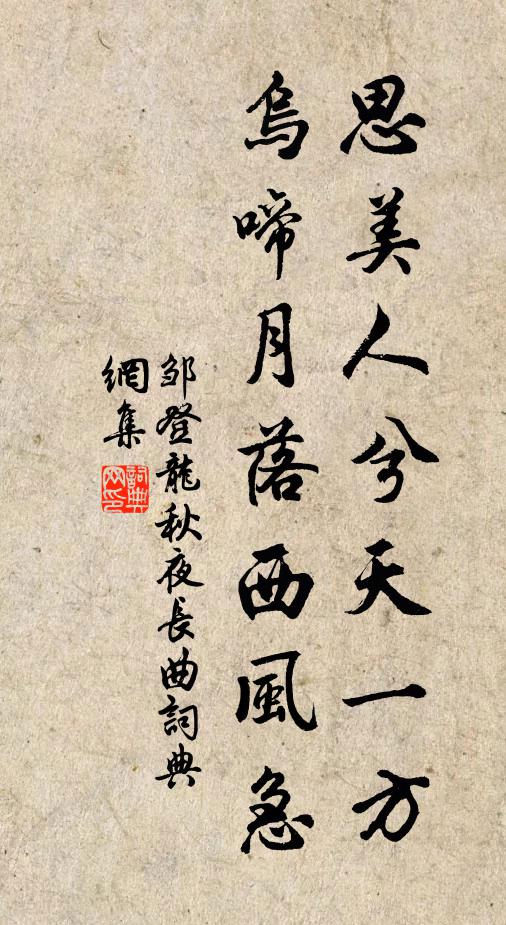 思美人兮天一方
烏啼月落西風急
邹登龍秋夜長曲詞典
網集
詞典
网印